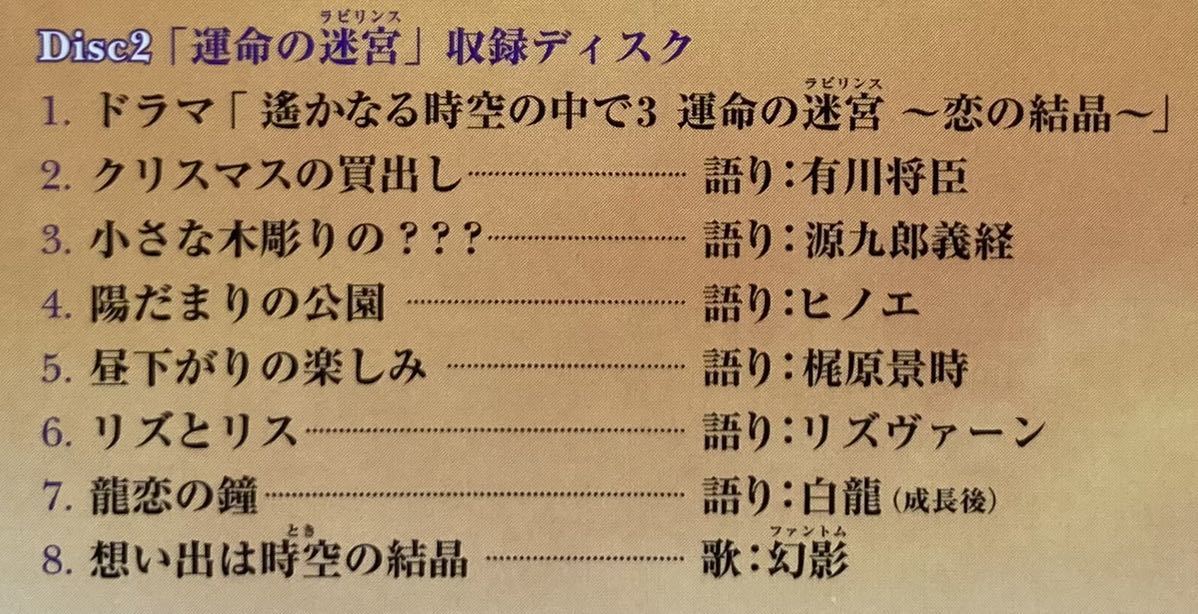 Disc2「運命の迷宮」収録ディスク
ラビリンス
1. ドラマ「 遙かなる時空の中で3 運命の迷宮 ～恋の結晶～」
ラビリンス
2. クリスマスの買出し 語り：有川将臣
3. 小さな木彫りの？？？ 語り：源九郎義経
4. 陽だまりの公園 語り：ヒノエ
5. 昼下がりの楽しみ 語り：梶原景時
6. リズとリス 語り：リズヴァーン
7. 龍恋の鐘 語り：白龍（成長後）
8. 想い出は時空の結晶 歌：幻影
とき
ファントム